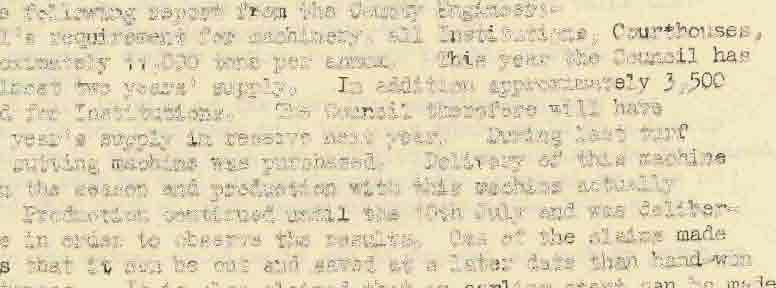 following report from the County Engineer:-
l's requirement for machinery, all Institutions, Courthouses,
oximately 11,000 tons per annum. This year the Council has
lmost two years' supply. In addition approximately 3,500
d for Institutions. The Council therefore will have
year's supply in reserve next year. During last turf
cutting machine was purchased. Delivery of this machine
n the season and production with this machine actually
Production continued until the 10th July and was deliber-
e in order to observe the results. One of the claims made
s that it can be cut and saved at a later date than hand-won
It is also claimed that an earlier start can be made